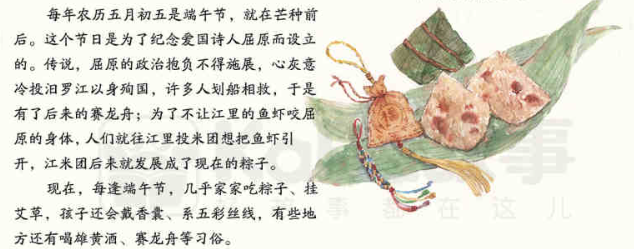 每年农历五月初五是端午节，就在芒种前
后。这个节日是为了纪念爱国诗人屈原而设立
的。传说，屈原的政治抱负不得施展，心灰意
冷投汨罗江以身殉国，许多人划船相救，于是
有了后来的赛龙舟；为了不让江里的鱼虾咬屈
原的身体，人们就往江里投米团想把鱼虾引
开，江米团后来就发展成了现在的粽子。
现在，每逢端午节，几乎家家吃粽子、挂
艾草，孩子还会戴香囊、系五彩丝线，有些地
方还有喝雄黄酒、赛龙舟等习俗。
事都在这儿